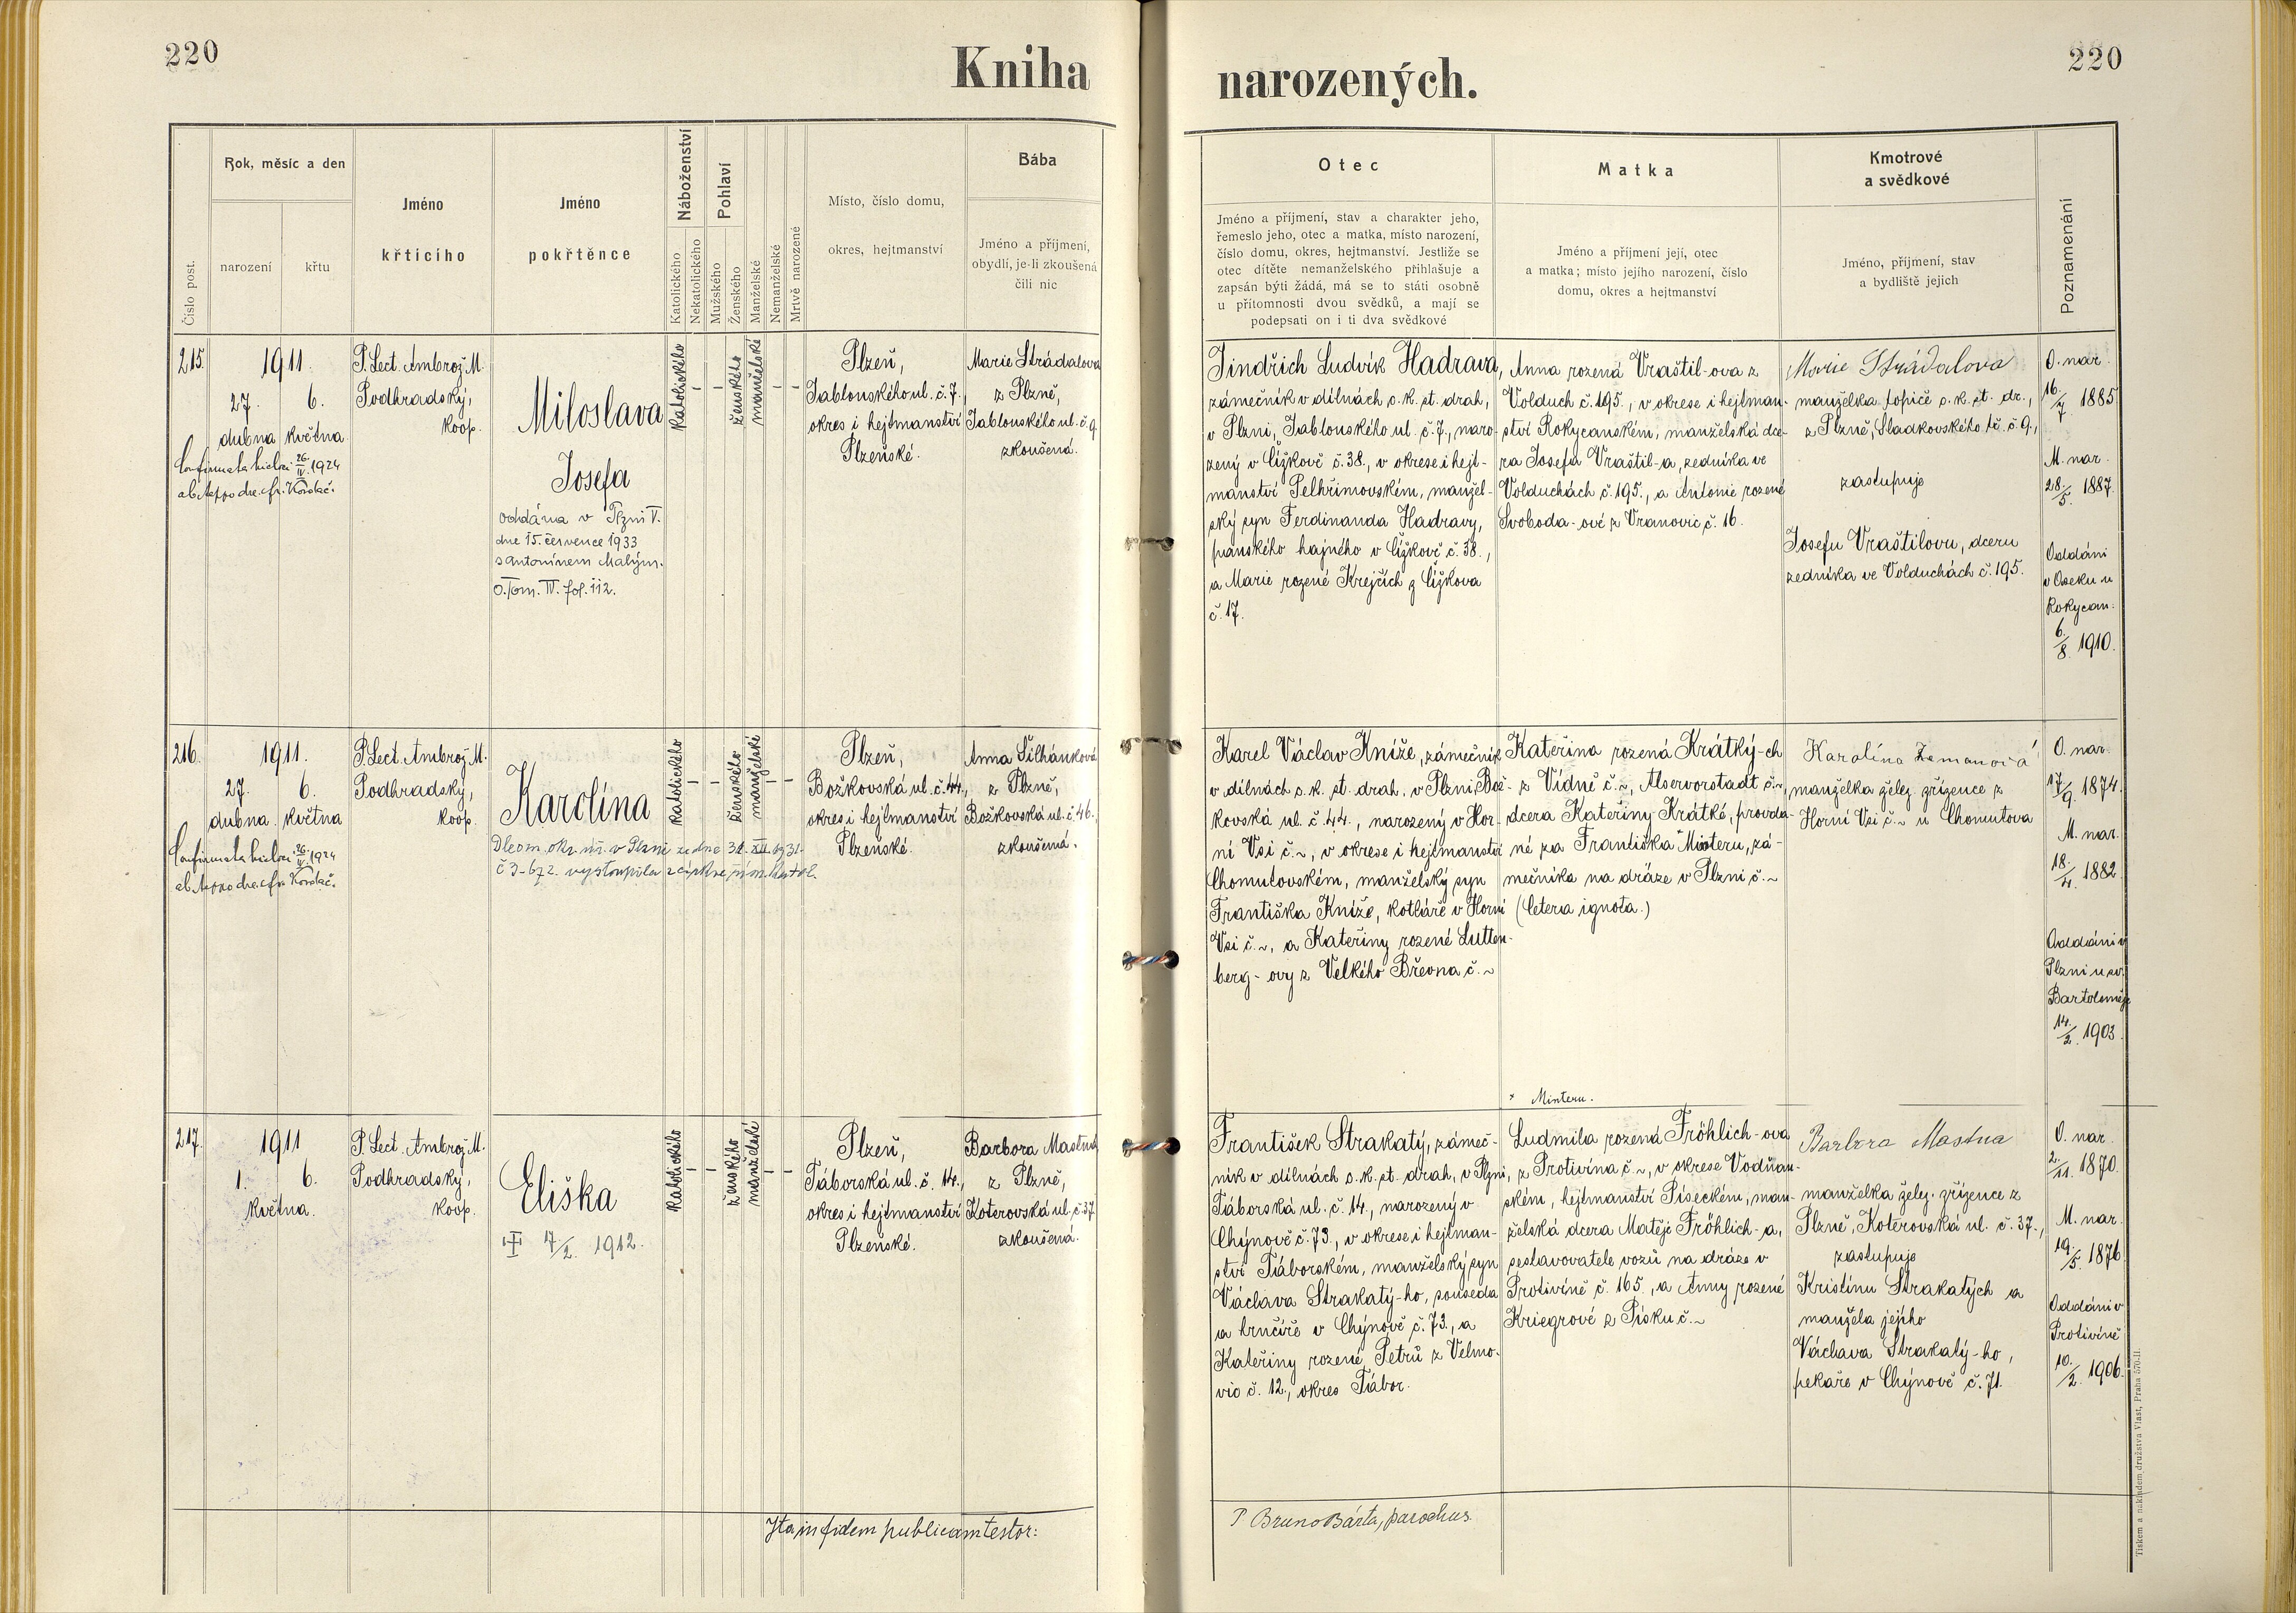 220
Kniha
narozených.
220
Číslo post.
Rok, měsíc a den
narození
křtu
Jméno
křtícího
Jméno
pokřtěnce
Náboženství
Katolického
Nekatolického
Pohlaví
Mužského
Ženského
Manželské
Nemanželské
Mrtvě narozené
Místo, číslo domu,
okres, hejtmanství
Bába
Jméno a příjmení,
obydlí, je-li zkoušená
čili nic
Otec
Jméno a příjmení, stav a charakter jeho,
řemeslo jeho, otec a matka, místo narození,
číslo domu, okres, hejtmanství. Jestliže se
otec dítěte nemanželského přihlašuje a
zapsán býti žádá, má se to státi osobně
u přítomnosti dvou svědků, a mají se
podepsati on i ti dva svědkové
Matka
Jméno a příjmení její, otec
a matka; místo jejího narození, číslo
domu, okres a hejtmanství
Kmotrové
a svědkové
Jméno, příjmení, stav
a bydliště jejich
Poznamenání
215.
1911.
27. 6.
dubna května
26/IV. 1924
P. Lect. Ambrož M.
Podhradský,
koop.
Miloslava
Josefa
oddána v Plzni V.
dne 15. července 1933
s Antonínem Malým.
O. Tom. IV. fol. 112.
Katolického
–
–
ženského
manželské
–
–
Plzeň,
Jablonského ul. č. 7.,
okres i hejtmanství
Plzeňské.
Marie Strádalova
z Plzně,
Jablonského ul. č. 9
zkoušená.
Jindřich Ludvík Hadrava,
zámečník v dílnách c. k. st. drah,
v Plzni, Jablonského ul. č. 7., naro-
zený v Čížkově č. 38., v okrese i hejt-
manství Pelhřimovském, manžel-
ský syn Ferdinanda Hadravy,
panského hajného v Čížkově č. 38.,
a Marie rozené Krejčích z Čížkova
č. 17.
Anna rozená Vraštil-ova z
Volduch č. 195., v okrese i hejtman-
ství Rokycanském, manželská dce-
ra Josefa Vraštil-a, zedníka ve
Volduchách č. 195., a Antonie rozené
Svoboda-ové z Vranovic č. 16.
Marie Strádalova
manželka topiče c. k. st. dr.,
z Plzně, Sladkovského tř. č. 9.,
zastupuje
Josefu Vraštilovu, dceru
zedníka ve Volduchách č. 195.
O. nar.
16./7. 1885
M. nar.
28./5. 1887.
Oddáni
v Oseku u
Rokycan.
6./8. 1910.
216.
1911.
27. 6.
dubna května
26/IV. 1924
P. Lect. Ambrož M.
Podhradský,
koop.
Karolína
Dle ozn. okr. úř. v Plzni ze dne 31. XII. 1931.
č 3-672. vystoupila z církve řím. katol.
Katolického
–
–
ženského
manželské
–
–
Plzeň,
Božkovská ul. č. 44.,
okres i hejtmanství
Plzeňské.
Anna Šilhánková
z Plzně,
Božkovská ul. č. 46.,
zkoušená.
Karel Václav Kníže, zámečník
v dílnách c. k. st. drah. v Plzni, Bož-
kovská ul. č. 44., narozený v Hor-
ní Vsi č. ~, v okrese i hejtmanství
Chomutovském, manželský syn
Františka Kníže, kotláře v Horní
Vsi č. ~, a Kateřiny rozené Lutten-
berg-ovy z Velkého Března č. ~
Kateřina rozená Krátký-ch
z Vídně č. ~, Alservorstadt č. ~,
dcera Kateřiny Krátké, provda-
né za Františka Misteru, zá-
mečníka na dráze v Plzni č. ~
(Cetera ignota.)
* Minteru.
Karolína Zemanová
manželka želez. zřízence z
Horní Vsi č. ~ u Chomutova
O. nar.
17./9. 1874.
M. nar.
18./4. 1882
Oddáni v
Plzni u sv.
Bartoloměje
14./2. 1903
217.
1911
1. 6.
května.
P. Lect. Ambrož M.
Podhradský,
koop.
Eliška
† 17/2. 1912.
Katolického
–
–
ženského
manželské
–
–
Plzeň,
Táborská ul. č. 14.,
okres i hejtmanství
Plzeňské.
Barbora Mastná
z Plzně,
Koterovská ul. č. 37.
zkoušená.
František Strakatý, zámeč-
ník v dílnách c. k. st. drah, v Plzni,
Táborská ul. č. 14., narozený v
Chýnově č. 73., v okrese i hejtman-
ství Táborském, manželský syn
Václava Strakatý-ho, souseda
a hrnčíře v Chýnově č. 73., a
Kateřiny rozené Petrů z Velmo-
vic č. 12., okres Tábor.
Ludmila rozená Fröhlich-ova
z Protivína č. ~, v okrese Vodňan-
ském, hejtmanství Píseckém, man-
želská dcera Matěje Fröhlich-a,
sestavovatele vozů na dráze v
Protivíně č. 165., a Anny rozené
Kriegrové z Písku č. ~
Barbora Mastna
manželka želez. zřízence z
Plzně, Koterovská ul. č. 37.,
zastupuje
Kristínu Strakatých a
manžela jejího
Václava Strakatý-ho,
pekaře v Chýnově č. 71.
O. nar.
2./11. 1870.
M. nar.
19./5. 1876
Oddáni v
Protivíně
10./2. 1906.
Ita in fidem publicam testor:
P. Bruno Bárta, parochus.
Tiskem a nákladem družstva Vlast, Praha 570-II.